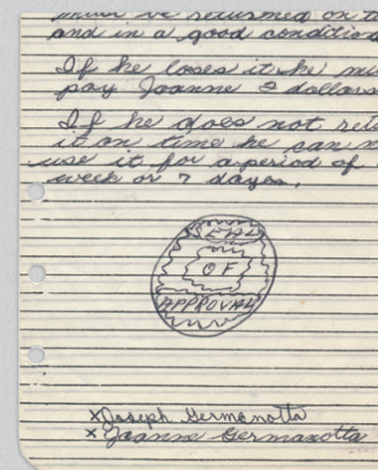 must be returned on t
and in a good condition
If he loses it he mu
pay Joanne 2 dollars
If he does not retu
it on time he can n
use it for a period of
week or 7 days.
SEAL
OF
APPROVAL
x Joseph Germanotta
x Joanne Germanotta